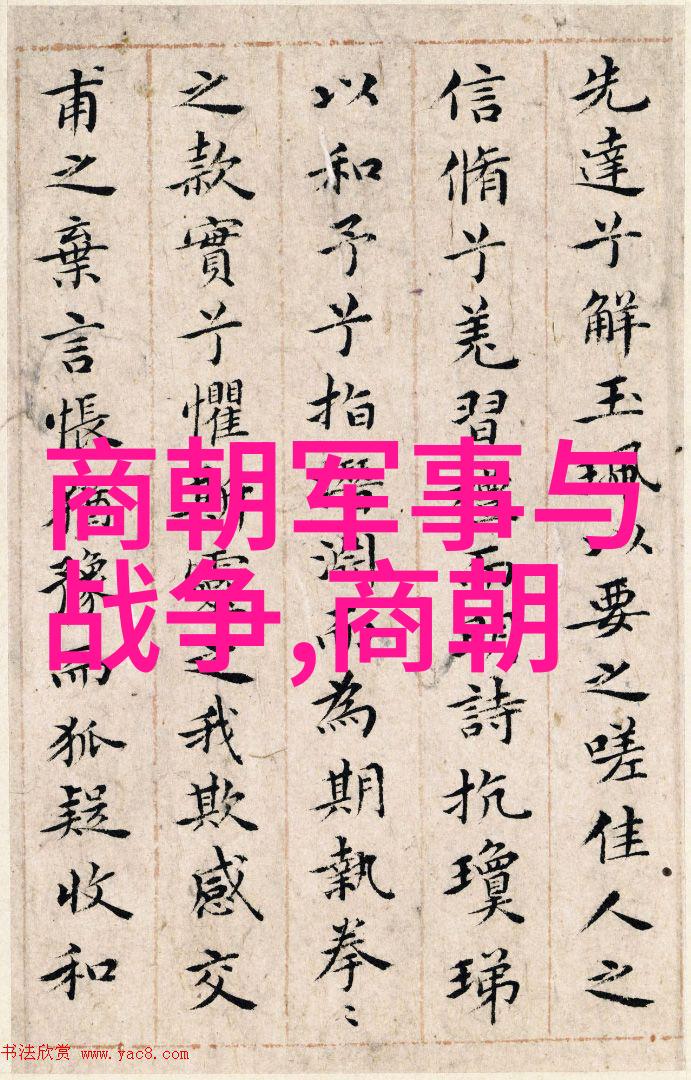 先達兮解玉珮以要之嗟佳人之
信脩兮羌習禮而明詩抗瓊珶
以和予兮指潛渊而為期執拳〻
之款實兮懼斯靈之我欺感交
甫之棄言悵猶豫而狐疑收和
商朝军事与
战争,商朝
书法欣赏 www.yac8.com